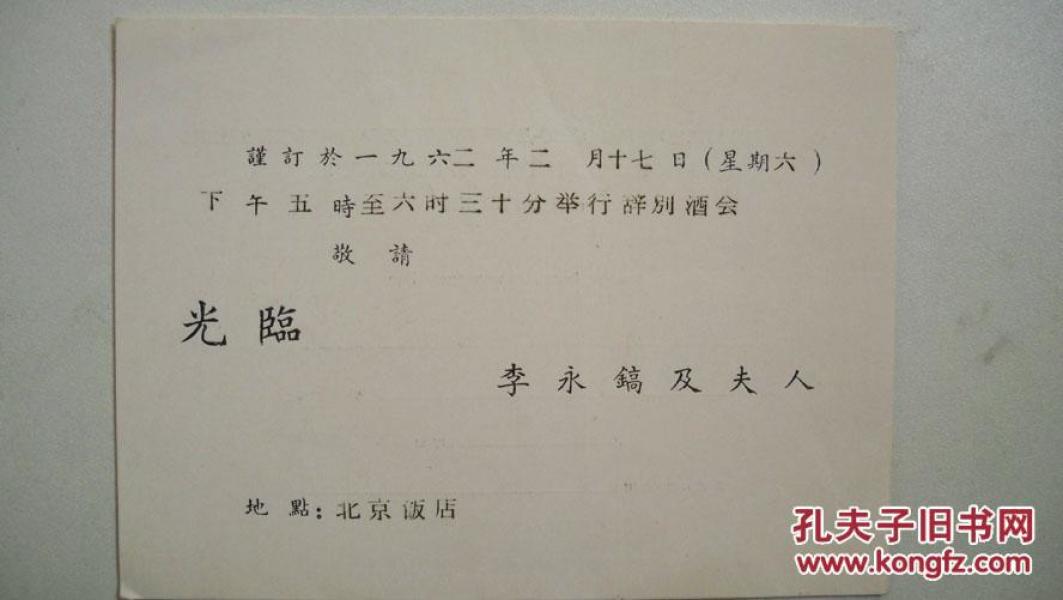 謹訂於一九六二年二月十七日(星期六)
下午五時至六时三十分举行辞别酒会
敬請
光臨
李永鎬及夫人
地點：北京饭店
孔夫子旧书网
www.kongfz.com